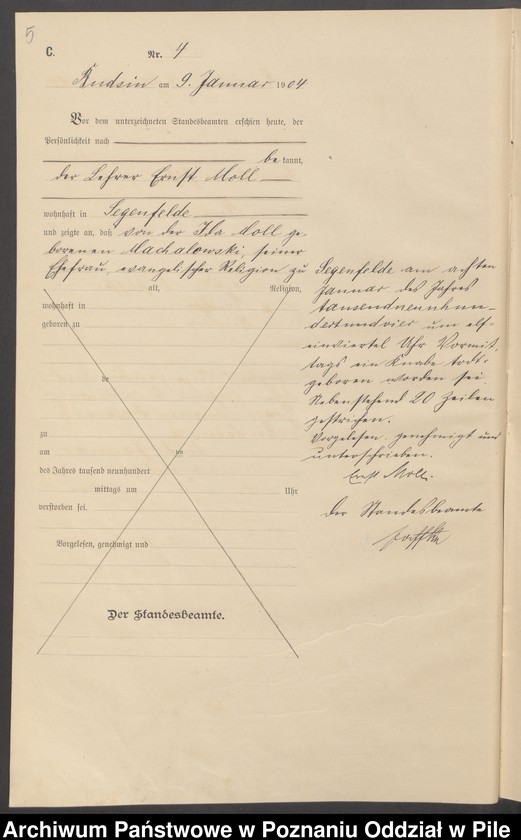 5
C.
Nr. 4
Rudsin am 9. Januar 1904
Vor dem unterzeichneten Standesbeamten erschien heute, der
Persönlichkeit nach
bekannt,
der Lehrer Ernst Moll
wohnhaft in Segenfelde
und zeigte an, daß von der Ida Moll ge-
borenen Machalowski, seiner
Ehefrau, evangelischer Religion zu
alt, Religion,
wohnhaft in
geboren zu
de
zu
am ten
des Jahres tausend neunhundert
mittags um Uhr
verstorben sei.
Vorgelesen, genehmigt und
Der Standesbeamte.
Segenfelde am achten
Januar des Jahres
tausendneunhun-
dertundvier um elf-
einviertel Uhr Vormit-
tags ein Knabe todt-
geboren worden sei.
Nebenstehend 20 Zeilen
gestrichen.
Vorgelesen, genehmigt und
unterschrieben.
Ernst Moll.
Der Standesbeamte
Archiwum Państwowe w Poznaniu Oddział w Pile